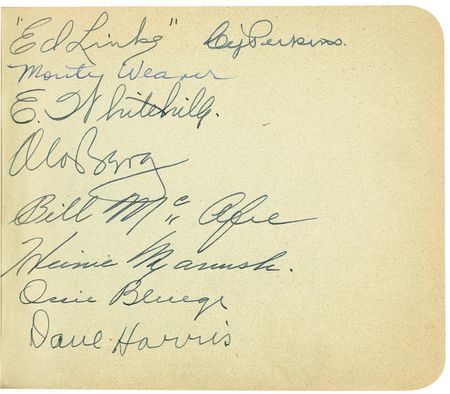 "Ed Linke" Cy Perkins.
Monty Weaver
E. Whitehill.
Moe Berg
Bill McAfee
Heinie Manush.
Ossie Bluege
Dave Harris